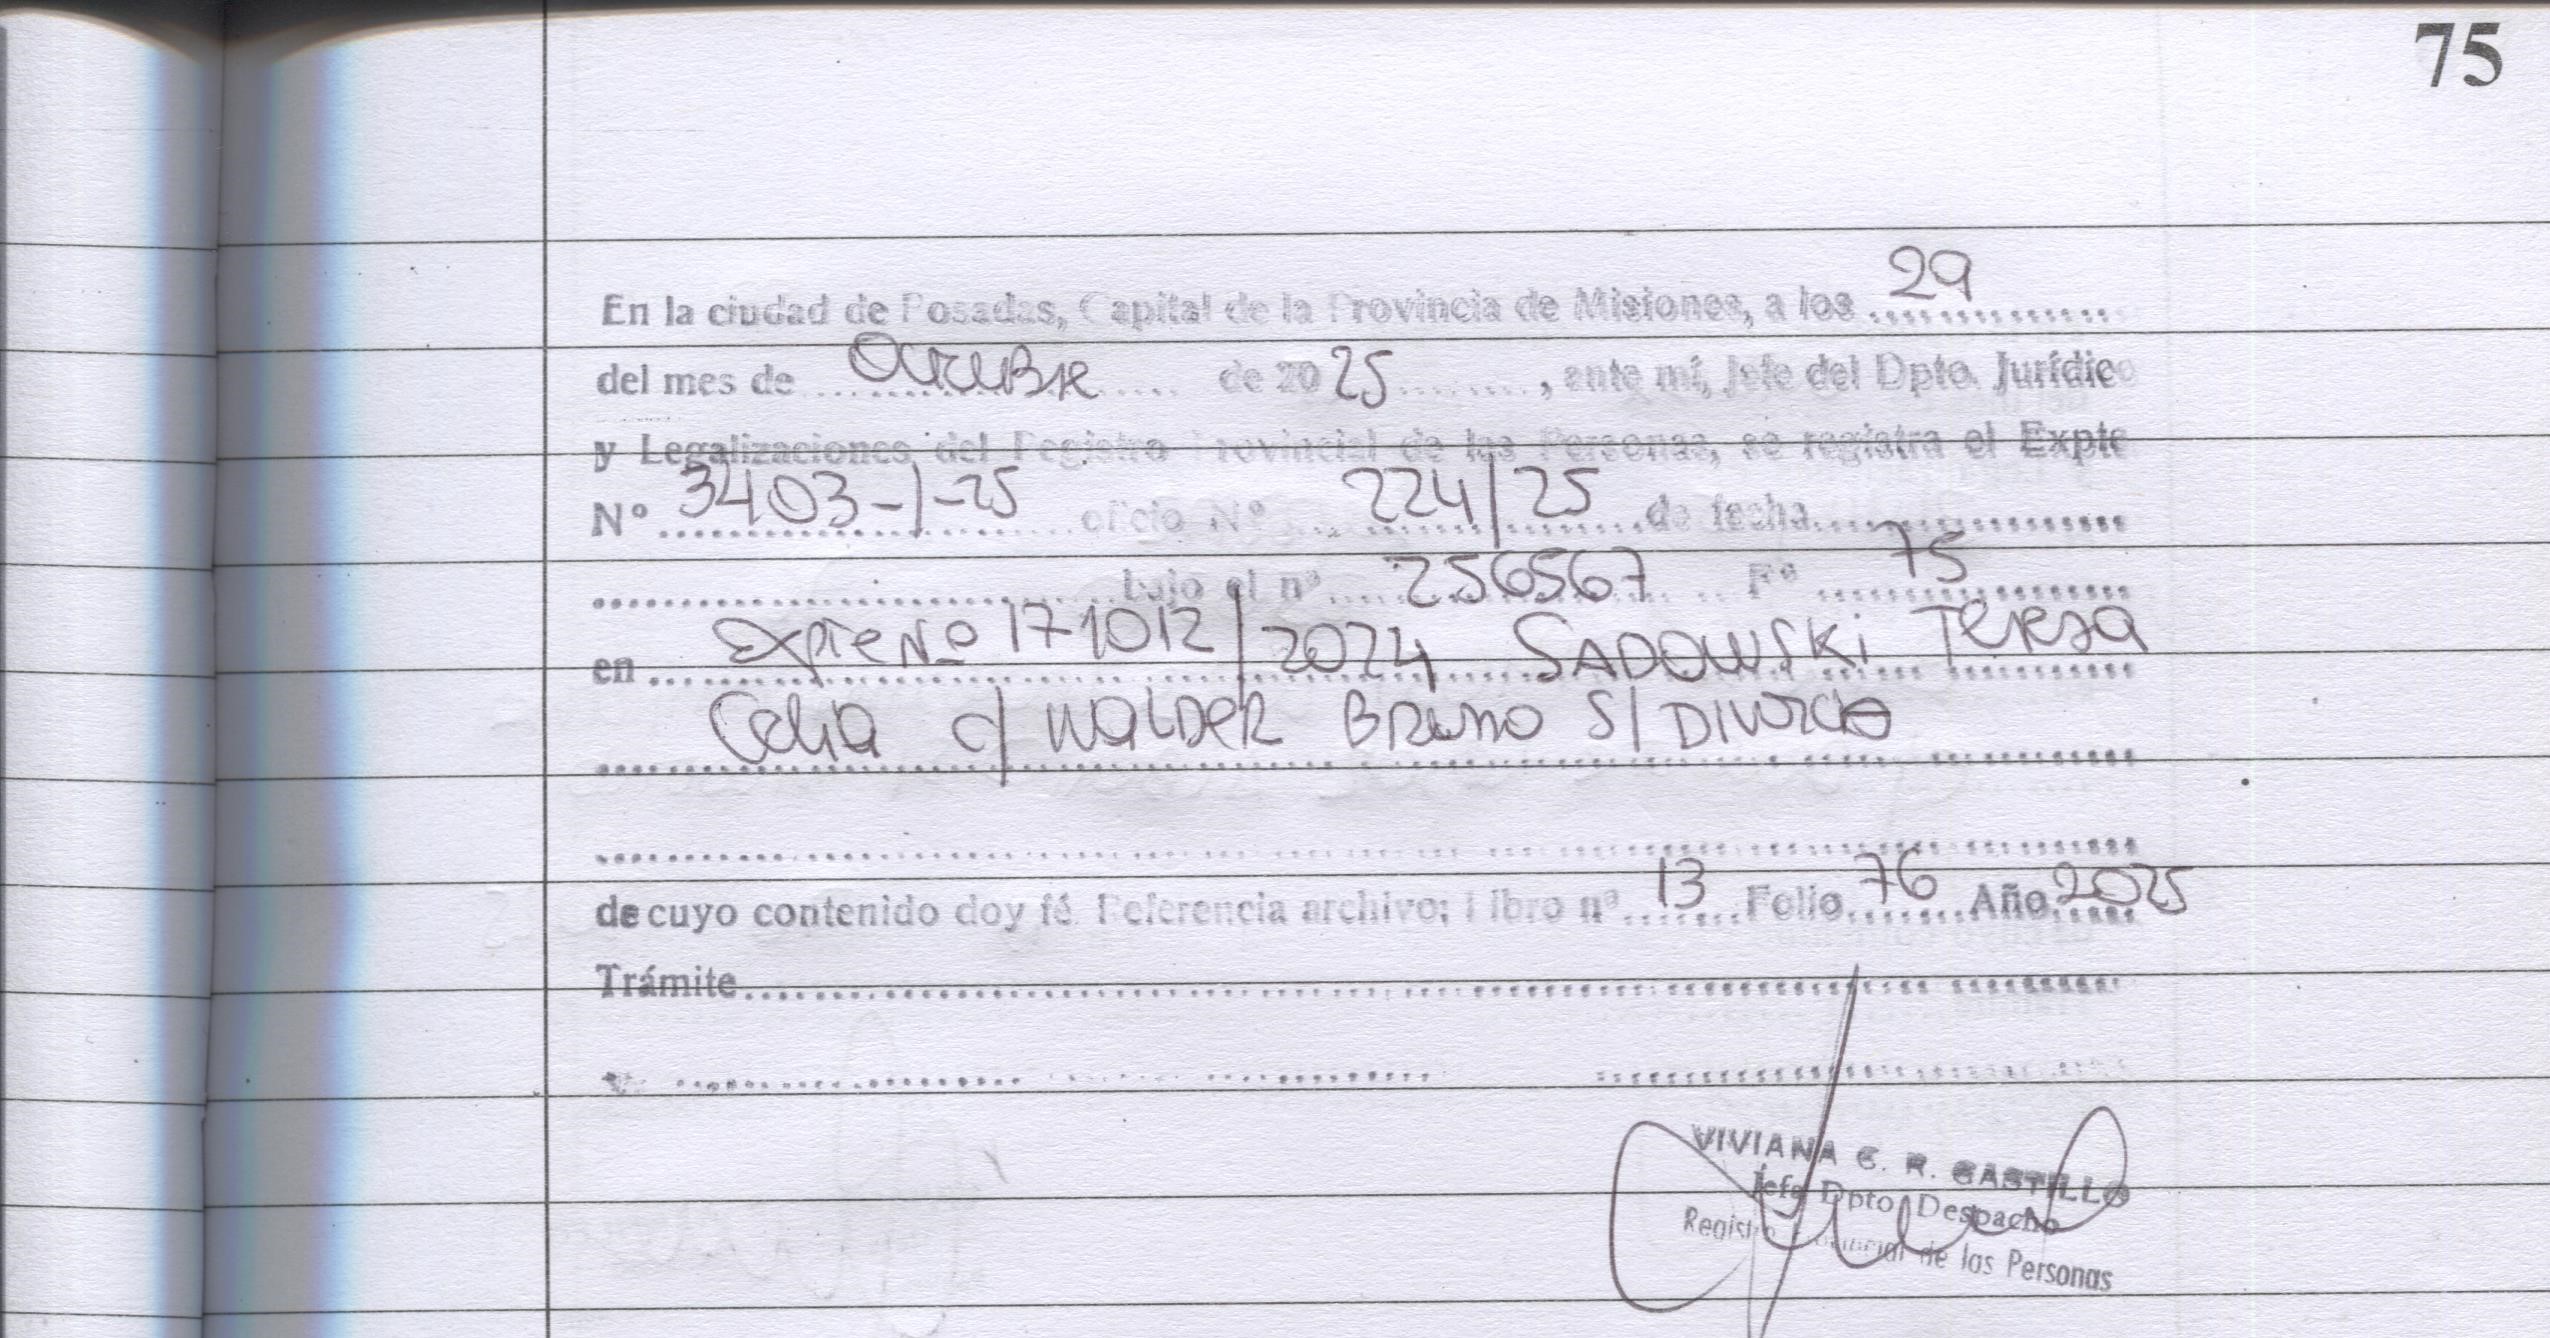 75
En la ciudad de Posadas, Capital de la Provincia de Misiones, a los 29
del mes de Octubre de 2025, ante mí, Jefe del Dpto. Jurídico
y Legalizaciones del Registro Provincial de las Personas, se registra el Expte
Nº 3403-1-25 oficio Nº 224/25 de fecha
bajo el nº 256567 Fº 75
en Expte Nº 171012/2024 SADOWSKI Teresa
Celia c/ WALDER BRUNO S/ DIVORCIO
de cuyo contenido doy fé. Referencia archivo; Libro nº 13 Folio 76 Año 2025
Trámite
VIVIANA C. R. CASTILLO
Jefe Dpto Despacho
Registro Provincial de las Personas